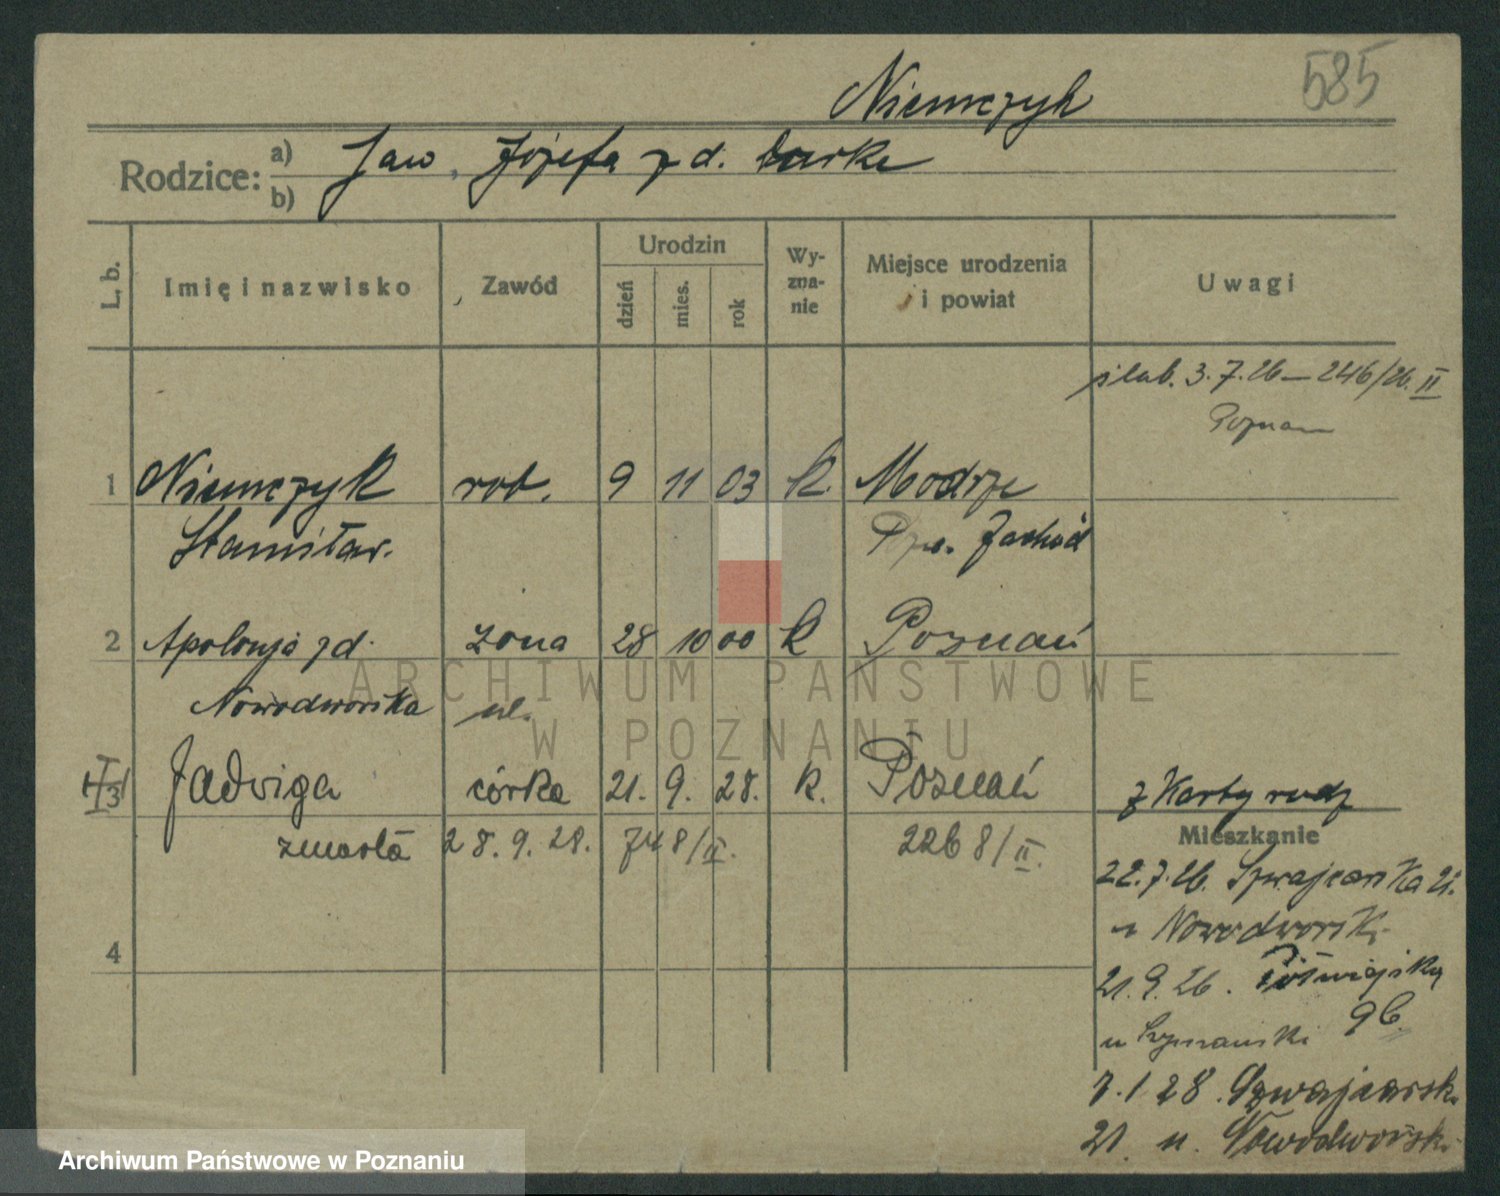 585
Niemczyk
Rodzice: a) Jan, Józefa z d.
b)
L. b. Imię i nazwisko Zawód Urodzin dzień mies. rok Wy-zna-nie Miejsce urodzenia i powiat Uwagi
ślub. 3.7.26 – 246/26. II
Poznań
1 Niemczyk rob. 9 11 03 k. Modrze
Stanisław. Pozn. Zachód
2 Apolonja z d. żona 28 10 00 k Poznań
Nowodworska
I/3 Jadwiga córka 21. 9. 28. k. Poznań z Karty rodz
zmarła 28.9.28. 748/II. 2268/II.
Mieszkanie
22.7.26. Szwajcarska 21.
u Nowodworski
4
21.9.26. Główiejska
u Szymanski 96
7.1.28. Szwajcarsk.
21. u. Nowodworski
ARCHIWUM PAŃSTWOWE
W POZNANIU
Archiwum Państwowe w Poznaniu